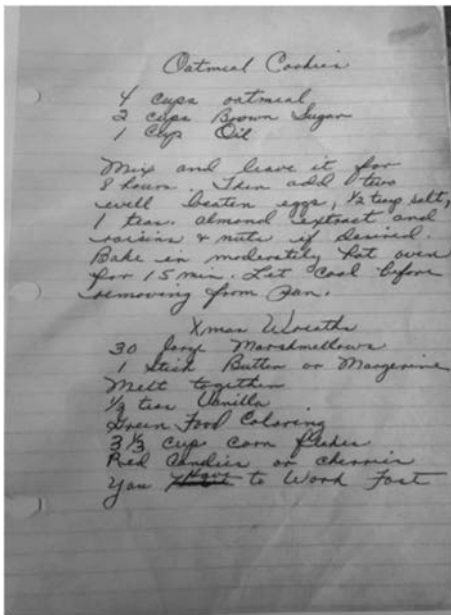 Oatmeal Cookies
4 cups oatmeal
2 cups Brown Sugar
1 Cup Oil
Mix and leave it for
8 hours. Then add two
well beaten eggs, 1/2 teasp salt,
1 teas. almond extract and
raisins & nuts if desired.
Bake in moderately hot oven
for 15 min. Let cool before
removing from pan.
Xmas Wreaths
30 large Marshmellows
1 Stick Butter or Margerine
Melt together
1/2 teas Vanilla
Green Food Coloring
3 1/3 cup corn flakes
Red Candies or cherries
You Have to Work Fast